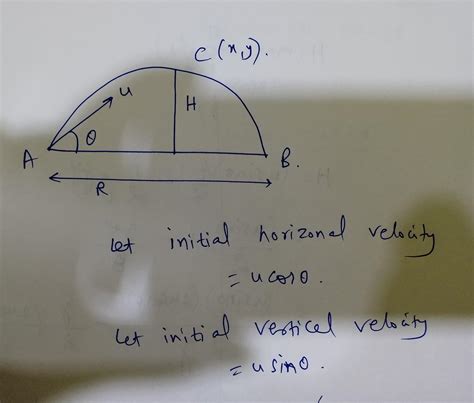 C (x,y).
u
H
θ
A
B.
R
Let initial horizonal velocity
= u cosθ.
Let initial vertical velocity
= u sinθ.